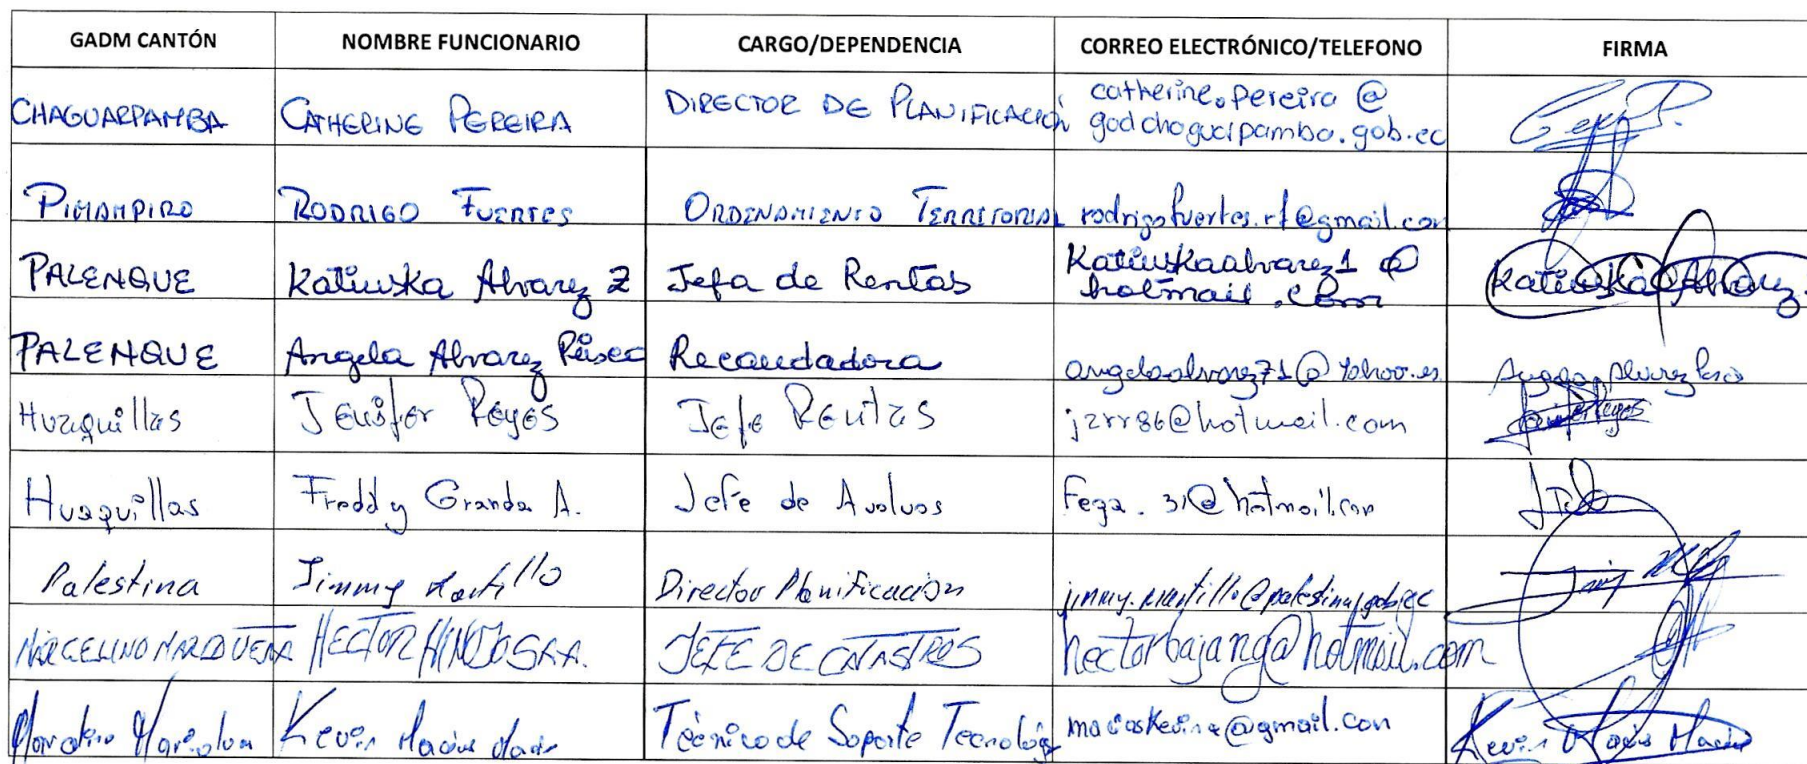 GADM CANTÓN NOMBRE FUNCIONARIO CARGO/DEPENDENCIA CORREO ELECTRÓNICO/TELEFONO FIRMA
CHAGUARPAMBA CATHERINE PEREIRA DIRECTOR DE PLANIFICACIÓN catherine.pereira@
gadchaguarpamba.gob.ec
PIMAMPIRO RODRIGO FUERTES ORDENAMIENTO TERRITORIAL rodrigofuertes.rf@gmail.com
PALENQUE Katiuska Alvarez Z Jefa de Rentas Katiuskaalvarez1@
hotmail.com Katiuska Alvarez
PALENQUE Angela Alvarez Recaudadora angelaalvarez71@yahoo.es Angela Alvarez
Huaquillas Jenifer Reyes Jefe Rentas jarr86@hotmail.com
Huaquillas Freddy Granda A. Jefe de Avaluos fega.31@hotmail.com
Palestina Jimmy Mantillo Director Planificacion jimmy.mantillo@palestina.gob.ec
MARCELINO MARIDUEÑA HECTOR HINOJOSA A. JEFE DE CATASTROS hectorbajang@hotmail.com
Marcelino Maridueña Kevin Macias Técnico de Soporte Tecnológ @gmail.com Kevin Macias Macias